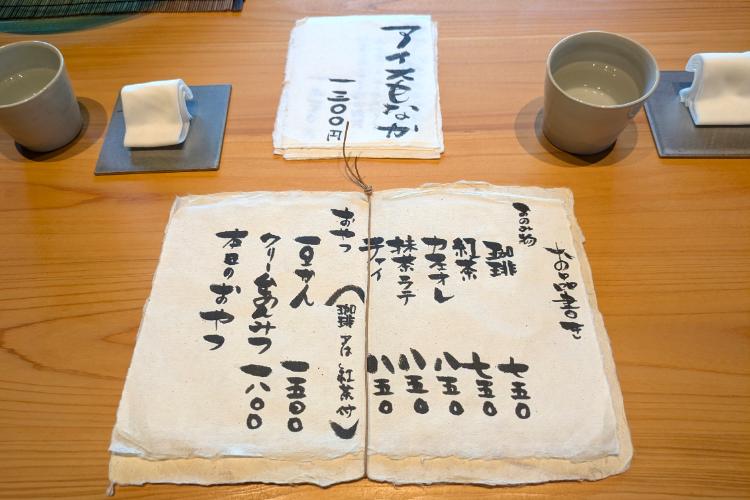 アイスもなか
一三〇〇円
お品書き
おのみ物
珈琲 七五〇
紅茶 七五〇
カフェオレ 八五〇
抹茶ラテ 八五〇
チャイ 八五〇
おやつ（珈琲又は紅茶付）
豆かん 一五〇〇
クリームあんみつ 一八〇〇
本日のおやつ